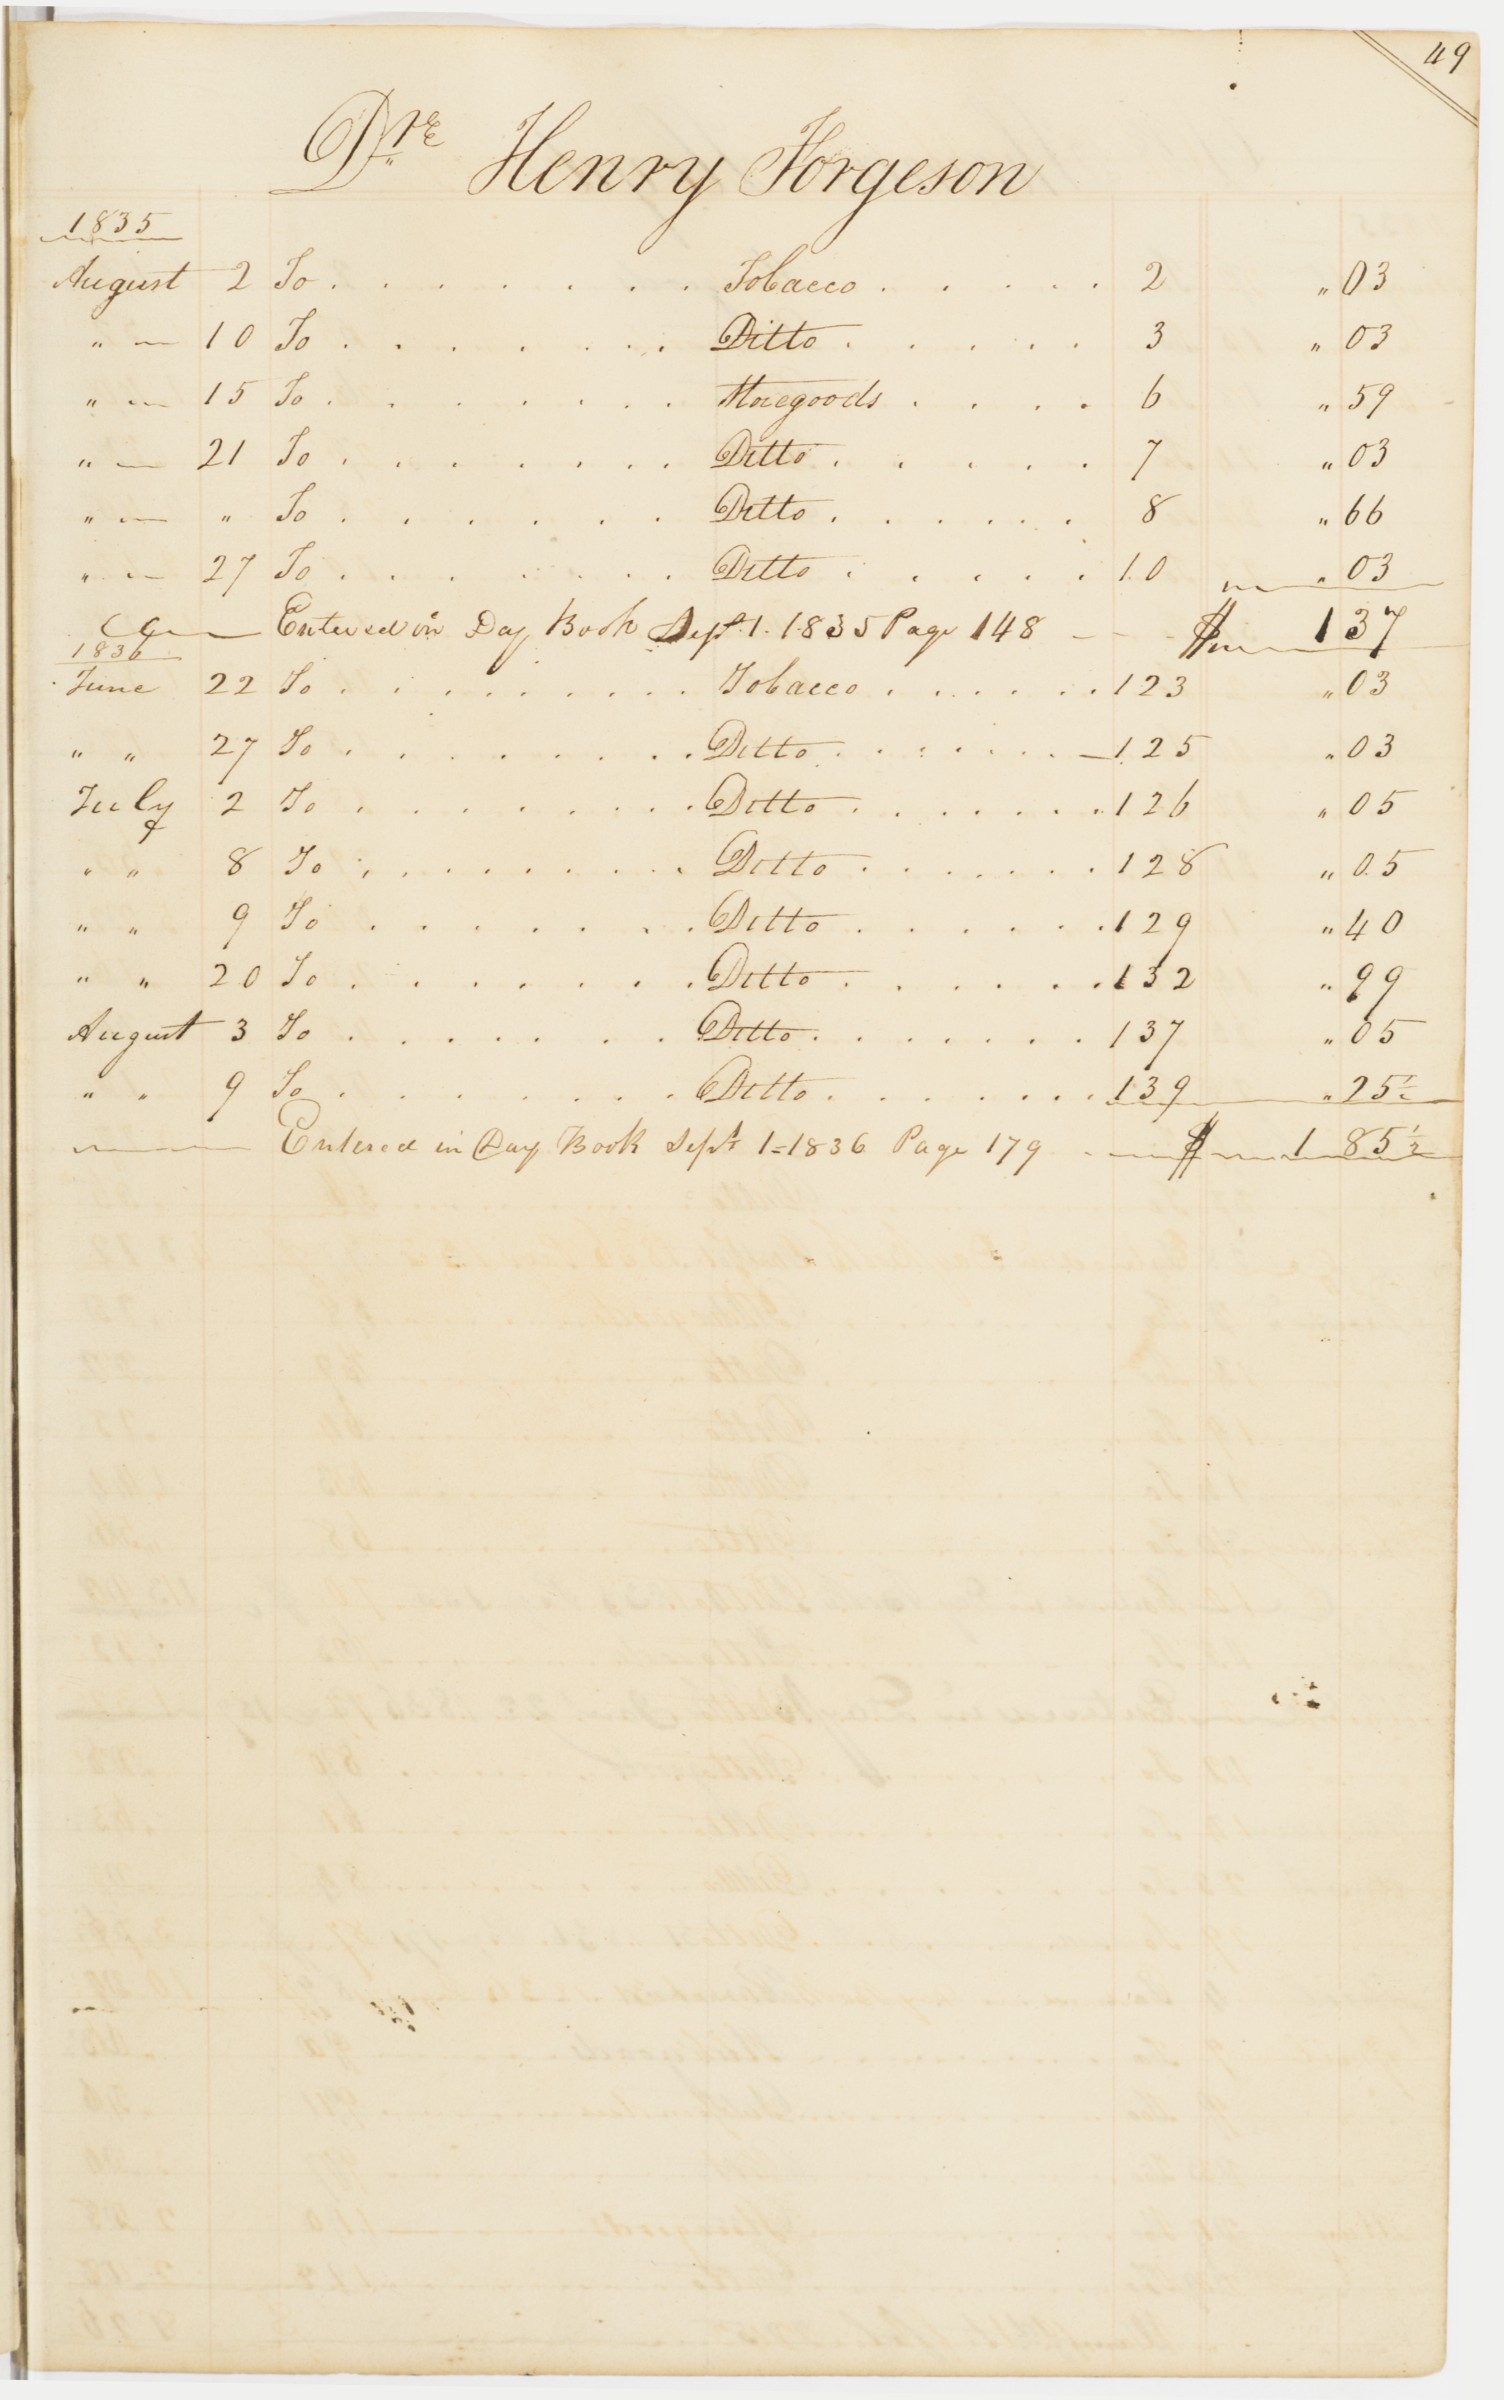 49
Dre Henry Forgeson
1835
August 2 To . . . . . . . Tobacco . . . . . 2 " 03
" — 10 To . . . . . . . Ditto . . . . . 3 " 03
" — 15 To . . . . . . . Storegoods . . . . 6 " 59
" — 21 To . . . . . . . Ditto . . . . . 7 " 03
" — " To . . . . . . . Ditto . . . . . . 8 " 66
" — 27 To . . . . . . . Ditto . . . . . 10 " 03
Entered in Day Book Sept. 1. 1835 Page 148 — $ 137
1836
June 22 To . . . . . . . . Tobacco . . . . . . 123 " 03
" " 27 To . . . . . . . . Ditto . . . . . . 125 " 03
July 2 To . . . . . . . . Ditto . . . . . . 126 " 05
" " 8 To . . . . . . . . Ditto . . . . . . 128 " 05
" " 9 To . . . . . . . . Ditto . . . . . . 129 " 40
" " 20 To . . . . . . . . Ditto . . . . . . 132 " 99
August 3 To . . . . . . . Ditto . . . . . . 137 " 05
" " 9 To . . . . . . . . Ditto . . . . . . 139 " 25½
Entered in Day Book Sept 1=1836 Page 179 $ 1 85½